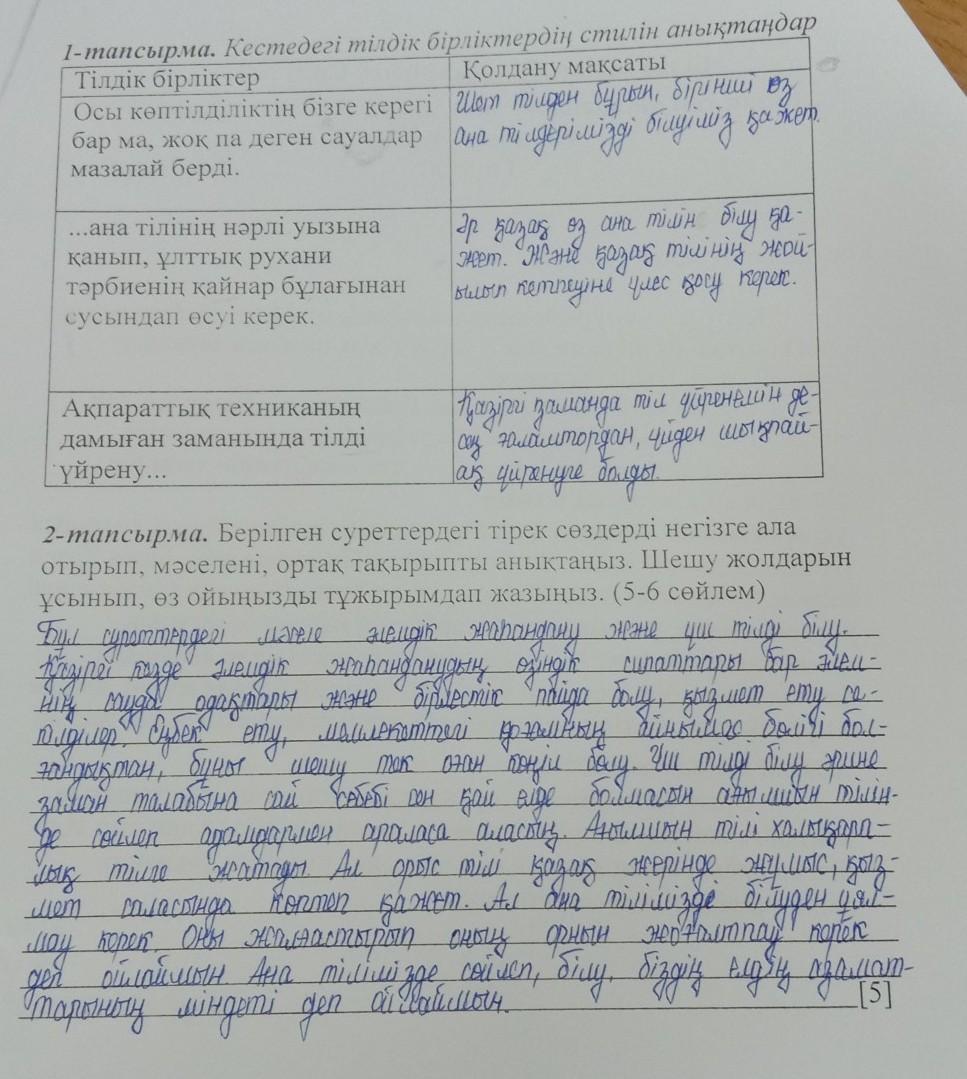 1-тапсырма. Кестедегі тілдік бірліктердің стилін анықтаңдар
Тілдік бірліктер
Қолдану мақсаты
Осы көптілділіктің бізге керегі
бар ма, жоқ па деген сауалдар
мазалай берді.
Шет тілден бұрын, бірінші өз
ана тілдерімізді білуіміз қажет.
...ана тілінің нәрлі уызына
қанып, ұлттық рухани
тәрбиенің қайнар бұлағынан
сусындап өсуі керек.
Әр қазақ өз ана тілін білу қа-
жет. Және қазақ тілінің жой-
ылып кетпеуіне үлес қосу керек.
Ақпараттық техниканың
дамыған заманында тілді
үйрену...
Қазіргі заманда тіл үйренемін де-
сең ғаламтордан, үйден шықпай-
ақ үйренуге болды.
2-тапсырма. Берілген суреттердегі тірек сөздерді негізге ала
отырып, мәселені, ортақ тақырыпты анықтаңыз. Шешу жолдарын
ұсынып, өз ойыңызды тұжырымдап жазыңыз. (5-6 сөйлем)
Бұл суреттердегі мәселе әлемдік жаһандану және үш тілді білу.
Қазіргі кезде әлемдік жаһанданудың өзіндік сипаттары бар әлем-
нің сауда одақтары және бірлестік пайда болу, қызмет ету са-
Еңбек ету, мемлекеттегі қоғамның айнымас бөлігі бол-
ғандықтан, бұны шешу тек оған көңіл бөлу. Үш тілді білу әрине
заман талабына сай себебі сен қай елде болмасын ағылшын тілін-
де сөйлеп адамдармен араласа аласың. Ағылшын тілі халықара-
лық тілге жатады. Ал орыс тілі қазақ жерінде жұмыс, қыз-
мет саласында көптеп қажет. Ал ана тілімізде білуден ұял-
мау керек. Оны жалғастырып оның орнын жоғалтпау керек
деп ойлаймын. Ана тілімізде сөйлеп, білу, біздің елдің азамат-
тарының міндеті деп ойлаймын.
[5]